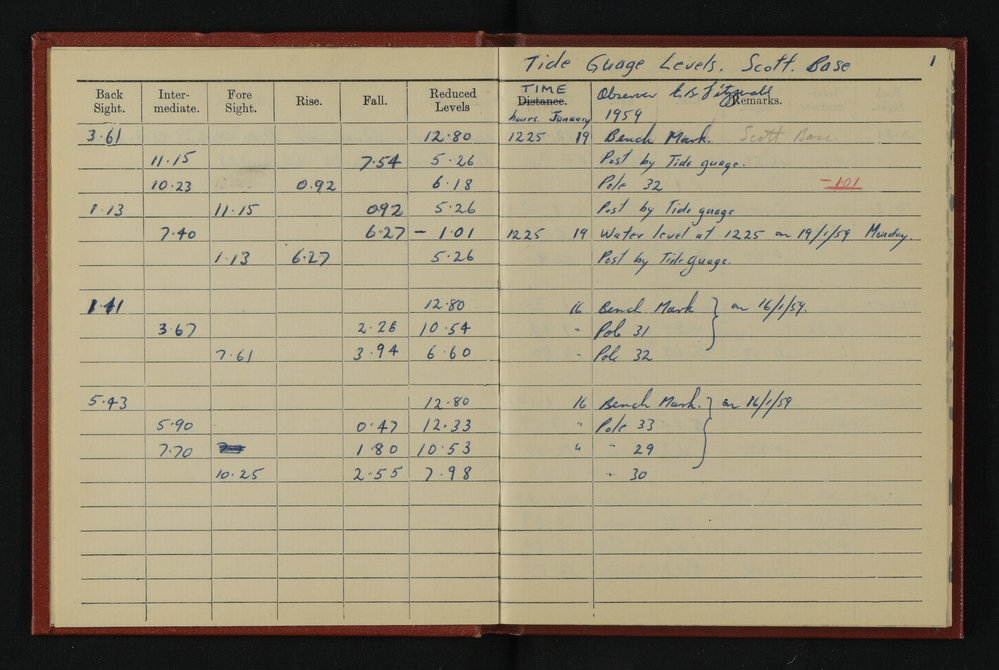 Tide Guage Levels. Scott. Base 1
Back Sight. Inter-mediate. Fore Sight. Rise. Fall. Reduced Levels TIME Distance. Observer Remarks.
hours January 1959
3.61 12.80 1225 19 Bench Mark. Scott Base
11.15 7.54 5.26 Post by Tide guage.
10.23 0.92 6.18 Pole 32 -1.01
1.13 11.15 092 5.26 Post by Tide guage
7.40 6.27 - 1.01 1225 19 Water level at 1225 on 19/1/59 Monday.
1.13 6.27 5.26 Post by Tide guage.
1.41 12.80 16 Bench Mark } on 16/1/59.
3.67 2.26 10.54 " Pole 31
7.61 3.94 6.60 " Pole 32
5.43 12.80 16 Bench Mark. } on 16/1/59
5.90 0.47 12.33 " Pole 33
7.70 1.80 10.53 " " 29
10.25 2.55 7.98 " 30